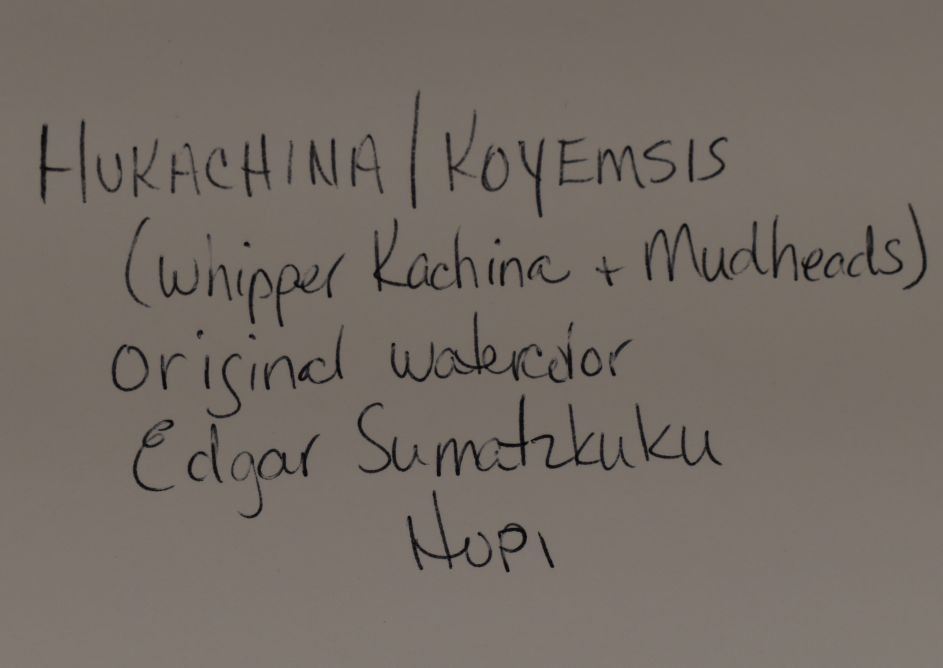 HUKACHINA / KOYEMSIS
(Whipper Kachina + Mudheads)
Original watercolor
Edgar Sumatzkuku
HOPI